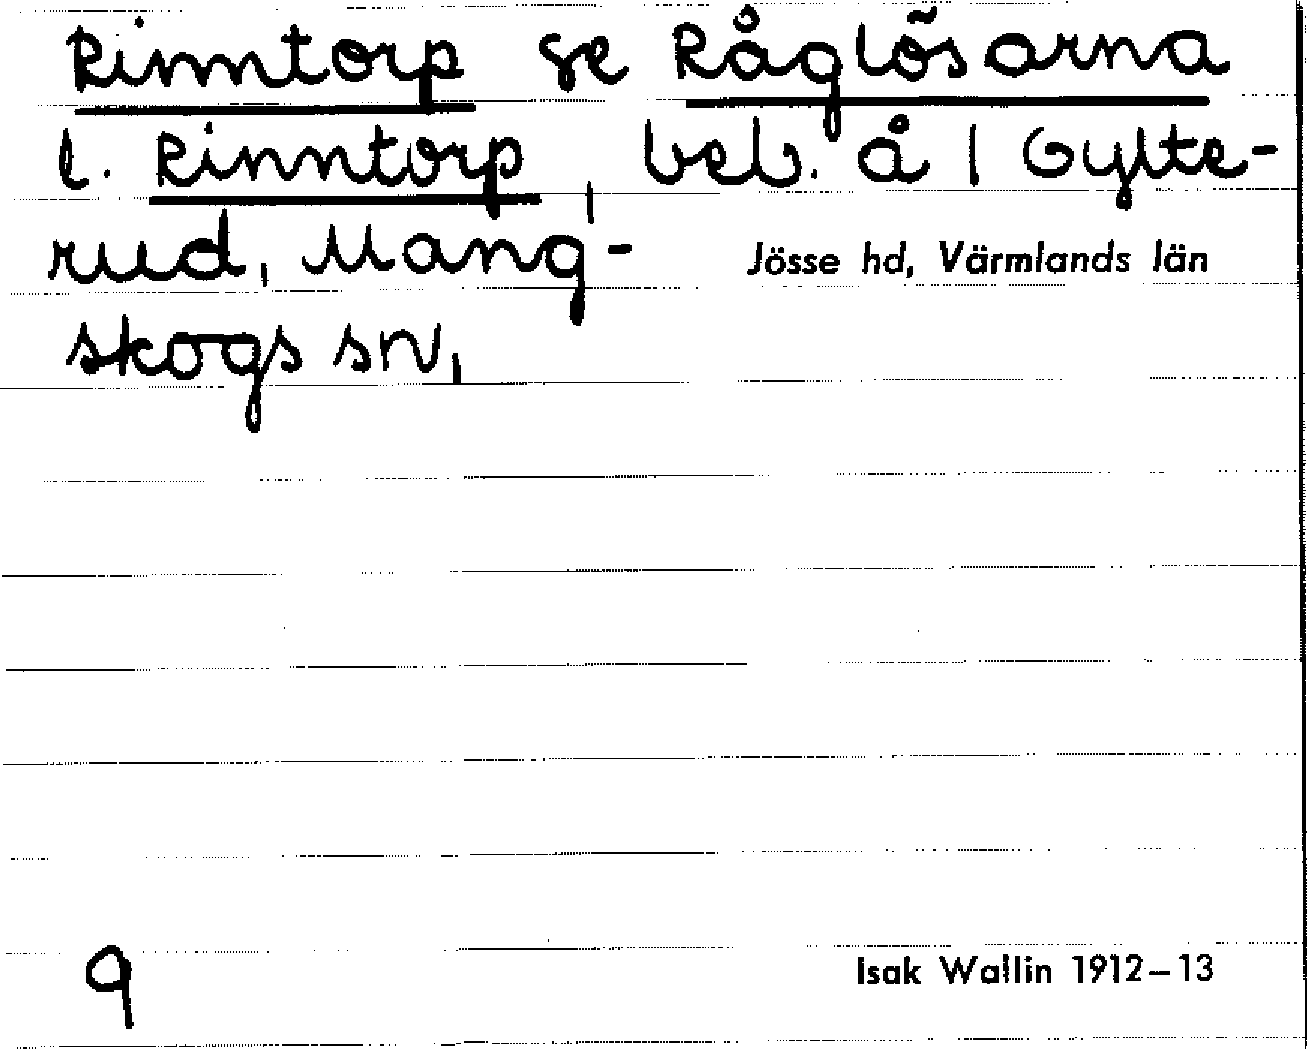 Rinntorp se Råglösarna
l. Rinntorp, beb. å 1 Gylte-
rud, Mang-
skogs sn,
Jösse hd, Värmlands län
9
Isak Wallin 1912–13